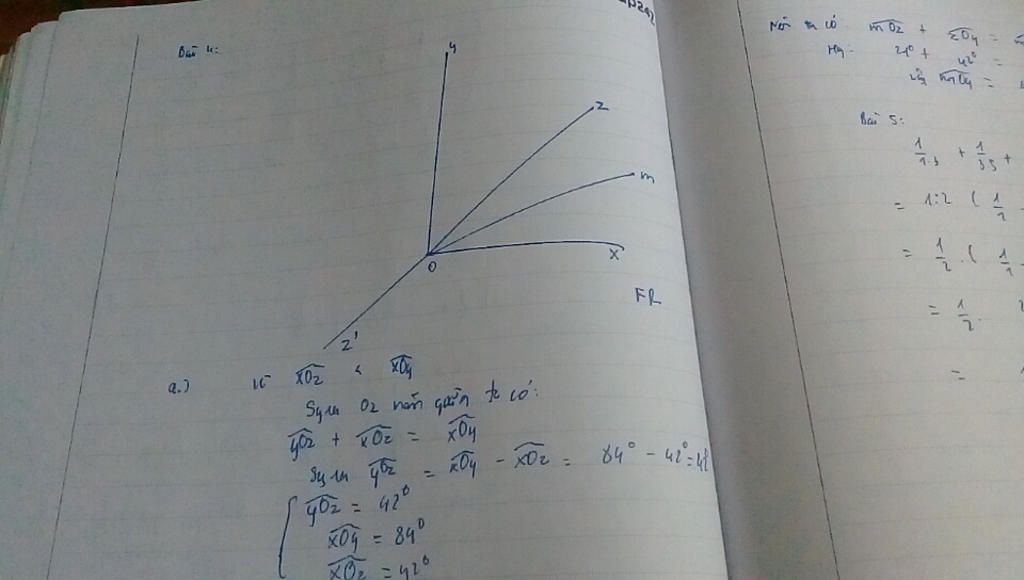 Bài 4:
y
z
m
O
x
z'
FR
a.) Vì xOz < xOy
Suy ra Oz nằm giữa ta có:
yOz + xOz = xOy
Suy ra yOz = xOy - xOz = 84° - 42° = 42
yOz = 42°
xOy = 84°
xOz = 42°
Nên ta có mOz + zOy =
Hay: 21° + 42° =
mOy =
Bài 5:
1/1.3 + 1/3.5 +
= 1:2 (
= 1/2 . (
= 1/2 .
=